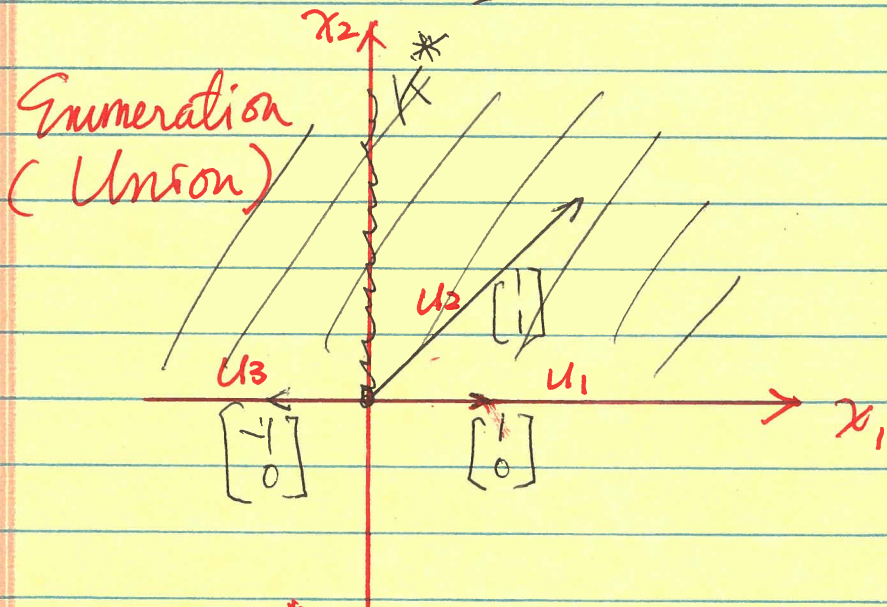 x2
K*
Enumeration
(Union)
u2
[1
1]
u3
u1
x1
[-1
0]
[1
0]